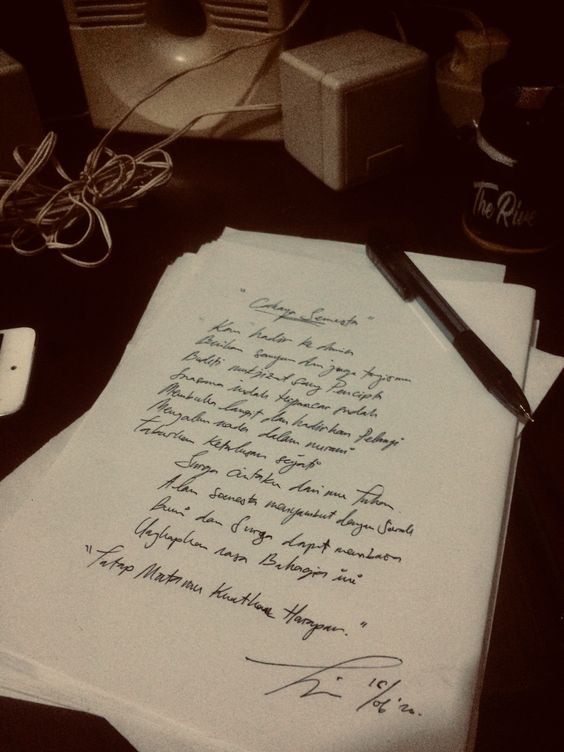 The Rive
"Cahaya Semesta"
Kau hadir ke dunia
Berikan senyum dan juga tangismu
Bukti mukjizat sang Pencipta
indah terpancar sudah
Membuka langit dan hadirkan Pelangi
Mengalun nada dalam nurani
Taburkan ketulusan sejati
Surga cintaku dari mu Tuhan
Alam semesta menyambut dengan
Bumi dan Surga dapat membaca
Ungkapkan rasa Bahagia ini
"Tatap Matamu Kuatkan Harapan."
18/06/20.